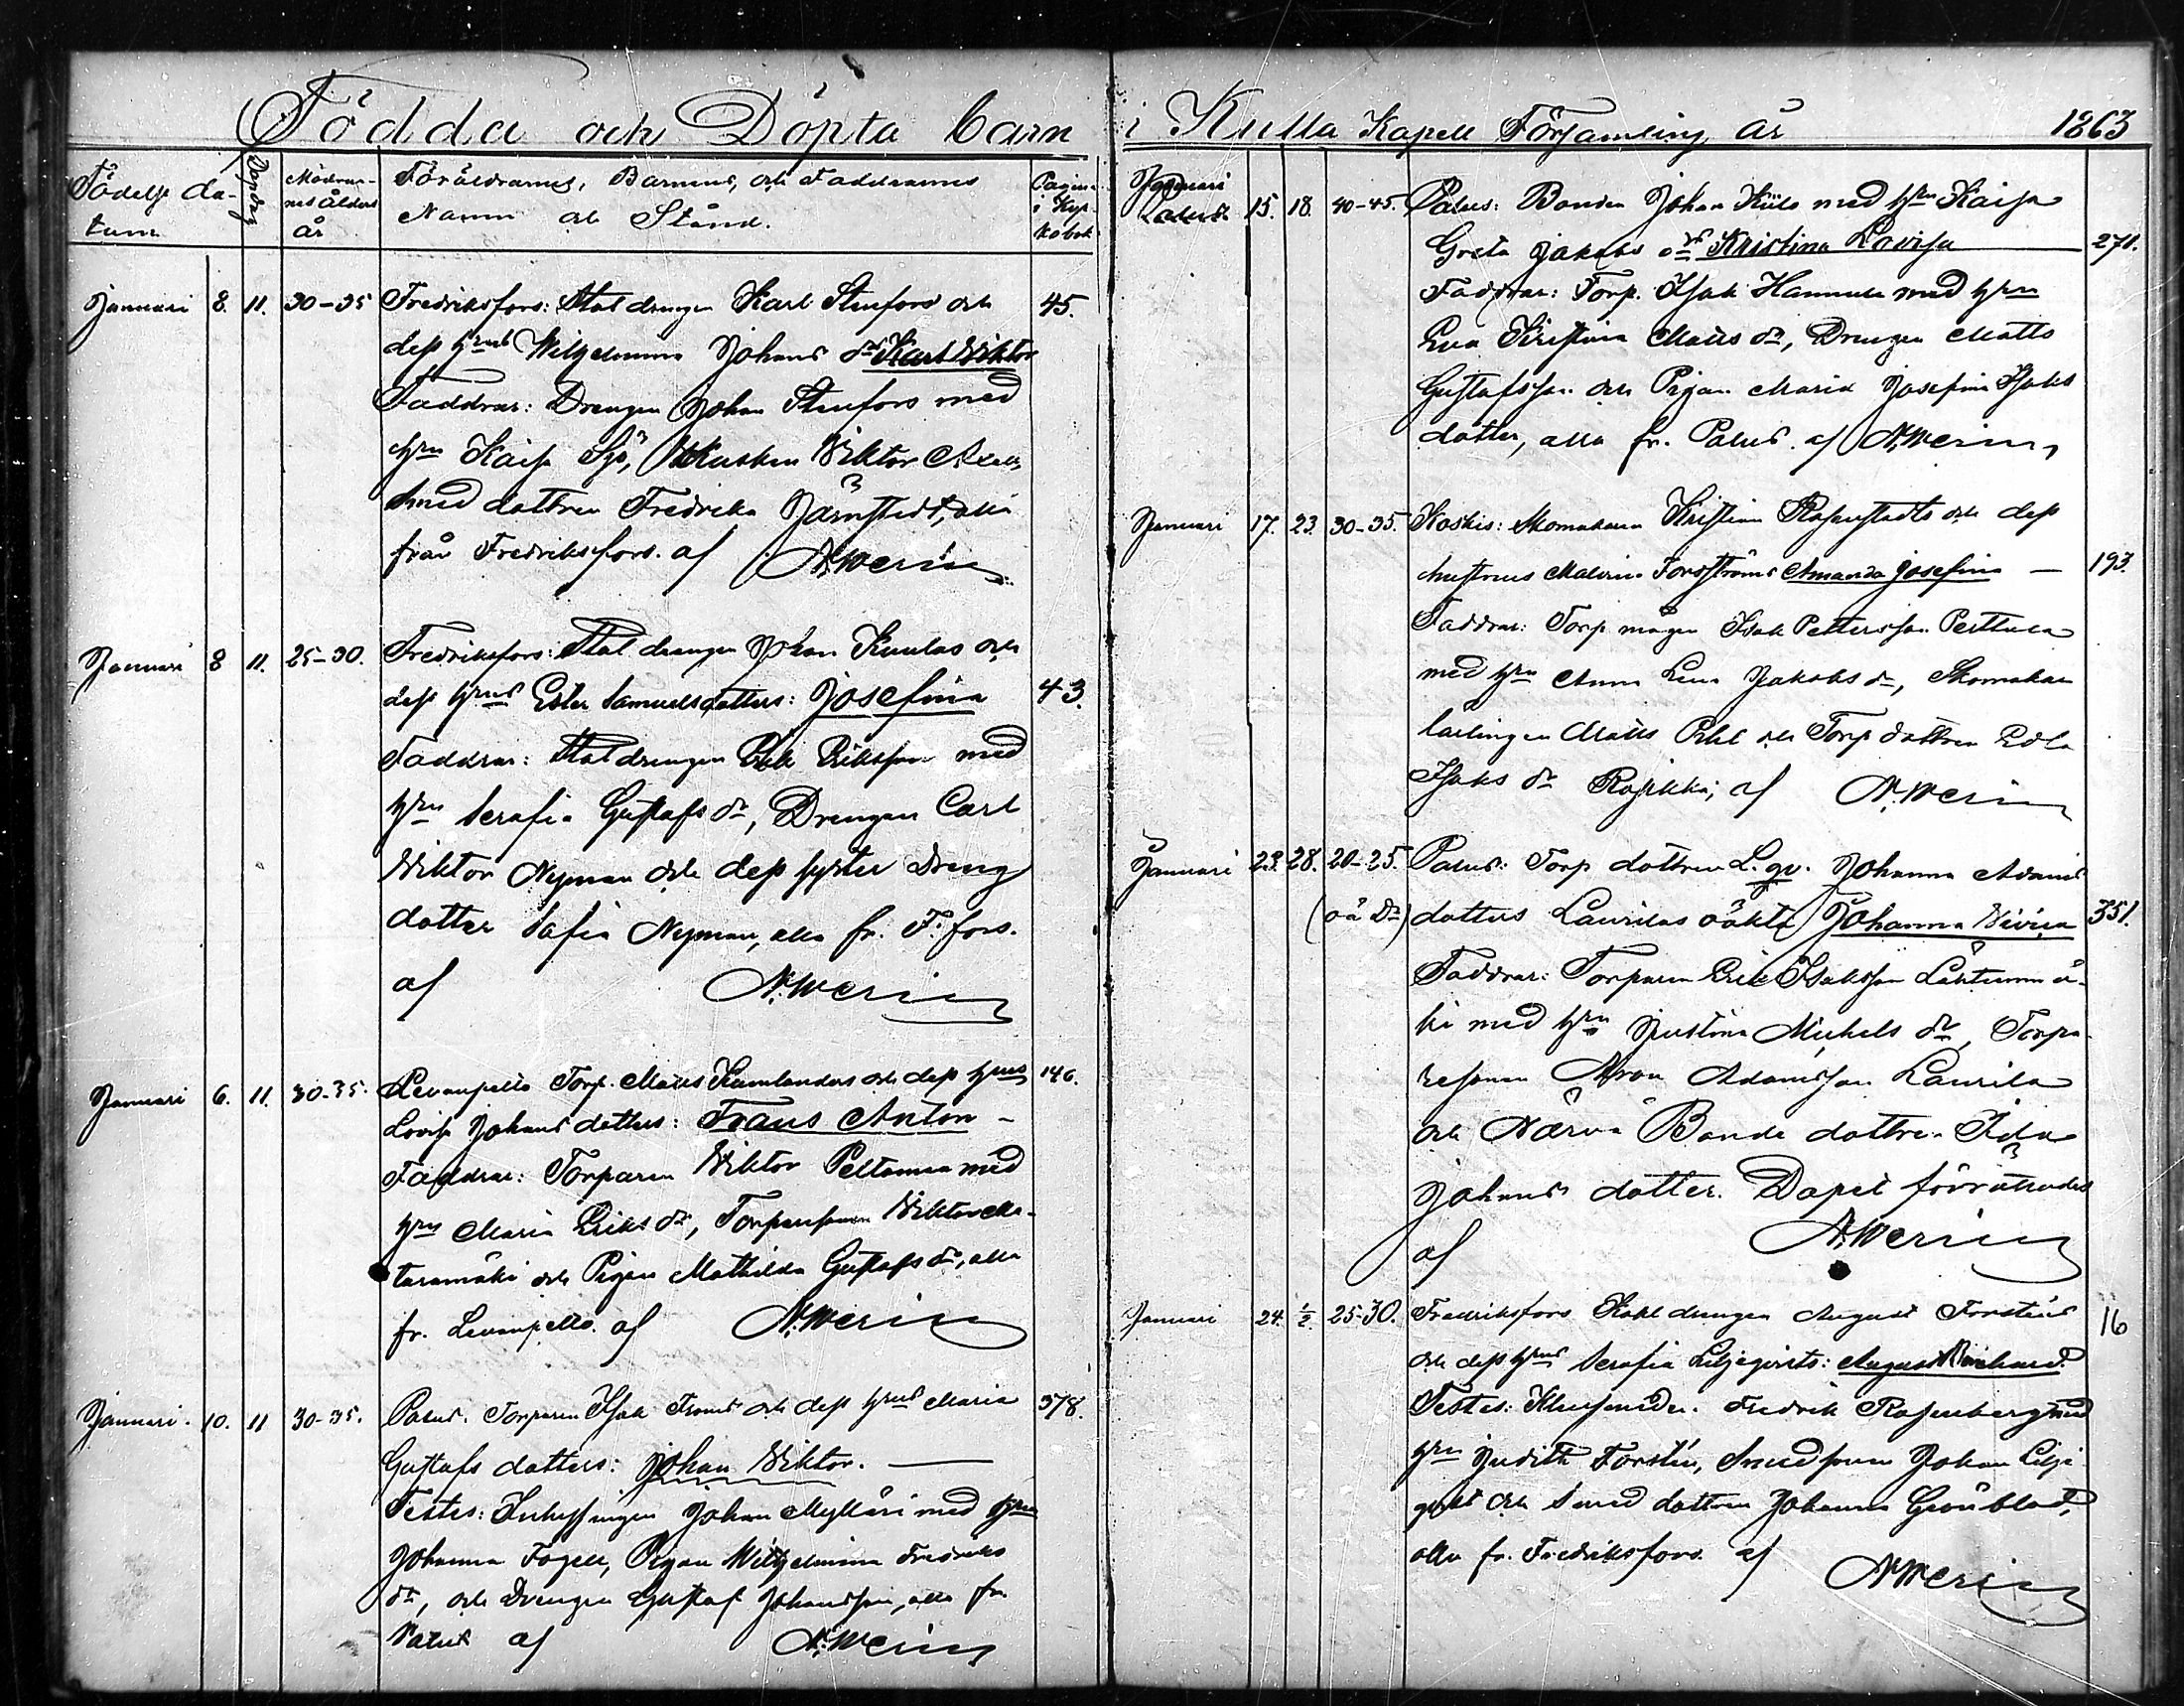 Födda och Döpta barn
Födelse da-
tum
Dopdag
Mödrar-
nes ålders
år
Föräldrarnes, Barnens, och Faddrarnes
Namn och Stånd.
Pagina
i Kyr-
kobok
Januari 8. 11. 30-35 Fredriksfors: Staldrengen Karl Stenfors och 45.
dess hrus Wilhelmina Johans dr Karl Wiktor
Faddrar: Drengen Johan Stenfors med
hrn Kaisa Sjö, Kusken Wiktor
Smed dottren Fredrika Järnstedt, alla
från Fredriksfors. af A. Werin
Januari 8 11. 25-30. Fredriksfors: Staldrengen Johan Kuulas och
dess hrus Ester Samuelsdotters: Josefina 43.
Faddrar: Staldrengen Erik Eriksson med
hrn Serafia Gustafs dr, Drengen Carl
Wiktor Nyman och dess syster Dreng
dotter Sofia Nyman, alla fr. F. fors.
af A. Werin
Januari 6. 11. 30-35. Levanpelto Torp. Matts Kumlanders och dess hrus 146.
Lovisa Johans dotters: Frans Anton -
Faddrar: Torparen Wiktor Peltomaa med
hrn Maria Eriks dr, Torparesonen Wiktor Ma-
taramäki och Pigan Mathilda Gustafs dr, alla
fr. Levanpelto. af A. Werin
Januari. 10. 11 30-35. Palus. Torparen Isak Froms och dess hrus Maria 378.
Gustafs dotters: Johan Wiktor.
Testes: Inhysingen Johan Mylläri med hrn
Johanna Fogell, Pigan Wilhelmina Fredriks
dr, och Drengen Gustaf Johansson, alla fr.
Palus af A. Werin
i Kulla Kapell Församling År 1863
Januari 15. 18. 40-45. Palus: Bonden Johan Kiils med hrn Kaisa
Palus
Greta Jakobs dr Kristina Lovisa 271.
Faddrar: Torp. Isak Hannula med hrn
Eva Kristina Matts dr, Drengen Matts
Gustafsson och Pigan Maria Josefina Isaks
dotter, alla fr. Palus. af A. Werin
Januari 17. 23. 30-35. Koskis: Skomakaren Kristian Rosenstedts och dess
hustrus Malvina Forsströms Amanda Josefina - 193.
Faddrar: Torp mågen Isak Pettersson Perttula
med hrn Anna Lena Jakobs dr, Skomakare
lärlingen Matts och Torp dottren Edla
Isaks dr Rajikka, af A. Werin
Januari 23. 28. 20-25. Palus: Torp dottren L. qv. Johanna Adams
(oä Dr) dotters Laurilas oäkta Johanna Sivina 351.
Faddrar: Torparen Erik Isaksson Lähteenmä-
ki med hrn Justina Michels dr, Torpa-
resonen Aron Adamsson Laurila
och Närvä Bonde dottren Ida
Johans dotter. Dopet förrättades
af A. Werin
Januari 24. 1/2. 25-30. Fredriksfors Stahl drengen August Forsténs 16
och dess hrus Serafia Liljeqvists: August Richard.
Testes: Klensmeden Fredrik Rosenberg med
hrn Judith Forstén, Smedsonen Johan Lilje-
qvist och Smed dottren Johanna Grönblad,
alla fr. Fredriksfors. af A. Werin